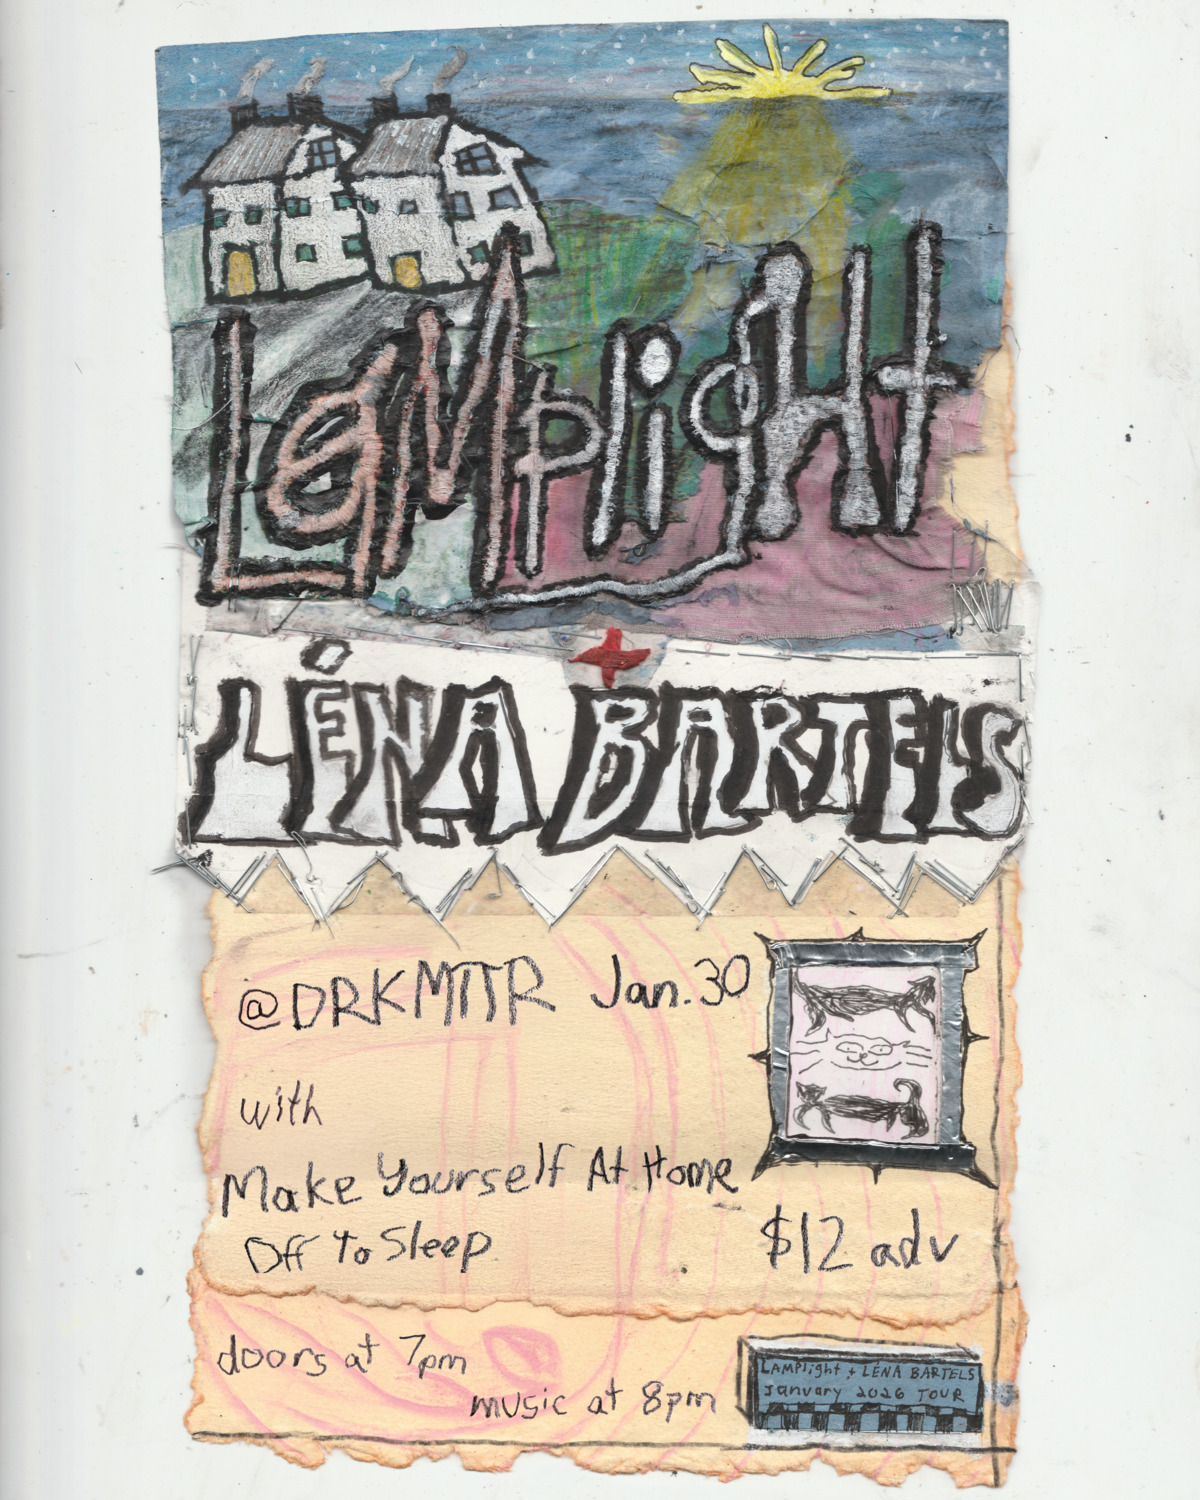 LaMpligHt
+
LÉNA BARTELS
@DRKMTTR Jan. 30
with
Make Yourself At Home
Off To Sleep
$12 adv
doors at 7pm
music at 8pm
LAMPlight + LÉNA BARTELS
January 2026 TOUR